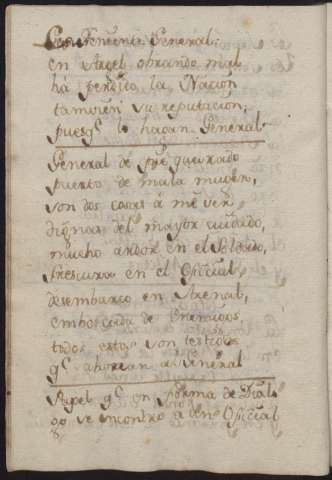 Con Teniente General
en Argel obrando mal
há perdido la Nacion
tambien su reputacion;
puesqᵉ lo hacan General.
General de pie queixado
puerto de mala muder,
son dos cosas á mi ver
dignas del mayor cuidado,
mucho ardor en el Soldado,
frescura en el Oficial,
desembarco en Arenal,
emboscada de Enemigos,
todos estos son testigos
qᵉ ahorcan al General
Papel qᵉ en forma de Dial-
go se encontro á un Oficial